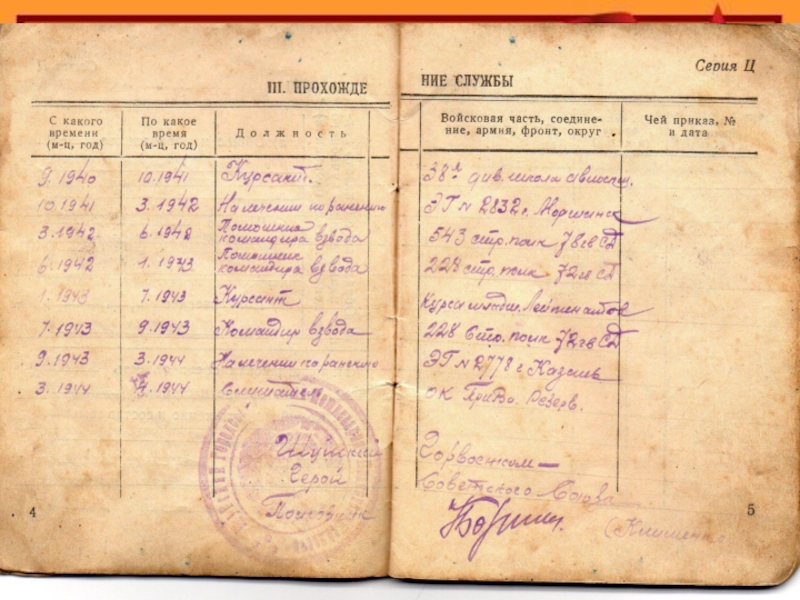 Серия Ц
III. ПРОХОЖДЕ НИЕ СЛУЖБЫ
С какого времени (м-ц, год)
По какое время (м-ц, год)
Должность
Войсковая часть, соедине-
ние, армия, фронт, округ
Чей приказ, №
и дата
9.1940 10.1941 Курсант. 38я див. школа
10.1941 3.1942 На лечении по ранению ЭГ № 2832 г. Моршанск
3.1942 6.1942 Помощник командира взвода 543 стр. полк 78 гв СД
6.1942 1.1943 Помощник командира взвода 224 стр. полк 72 гв СД
1.1943 7.1943 Курсант Курсы младш. Лейтенантов
7.1943 9.1943 Командир взвода 228 Стр. полк 72 гв СД
9.1943 3.1944 На лечении по ранению ЭГ № 2778 г. Казань
3.1944 4.1944 ОК Резерв.
Шуйский Горвоенком—
Герой Советского Союза
4
5